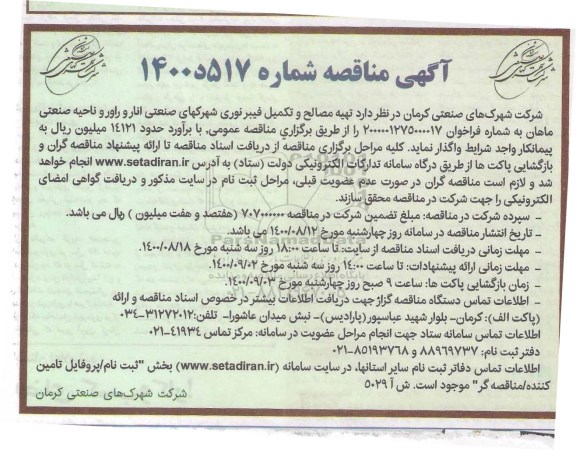 آگهی مناقصه شماره ۵۱۷د۱۴۰۰
شرکت شهرک‌های صنعتی کرمان در نظر دارد تهیه مصالح و تکمیل فیبر نوری شهرکهای صنعتی انار و راور و ناحیه صنعتی
ماهان به شماره فراخوان ۲۰۰۰۰۰۱۲۷۵۰۰۰۰۱۷ را از طریق برگزاری مناقصه عمومی, با برآورد حدود ۱۴۱۲۱ میلیون ریال به
پیمانکار واجد شرایط واگذار نماید. کلیه مراحل برگزاری مناقصه از دریافت اسناد مناقصه تا ارائه پیشنهاد مناقصه گران و
بازگشایی پاکت ها از طریق درگاه سامانه تدارکات الکترونیکی دولت (ستاد) به آدرس www.setadiran.ir انجام خواهد
شد و لازم است مناقصه گران در صورت عدم عضویت قبلی، مراحل ثبت نام در سایت مذکور و دریافت گواهی امضای
الکترونیکی را جهت شرکت در مناقصه محقق سازند.
- سپرده شرکت در مناقصه: مبلغ تضمین شرکت در مناقصه ۷۰۷۰۰۰۰۰۰ (هفتصد و هفت میلیون ) ریال می باشد.
- تاریخ انتشار مناقصه در سامانه روز چهارشنبه مورخ ۱۴۰۰/۰۸/۱۲ می باشد.
- مهلت زمانی دریافت اسناد مناقصه از سایت: تا ساعت ۱۸:۰۰ روز سه شنبه مورخ ۱۴۰۰/۰۸/۱۸.
- مهلت زمانی ارائه پیشنهادات: تا ساعت ۱۴:۰۰ روز سه شنبه مورخ ۱۴۰۰/۰۹/۰۲.
- زمان بازگشایی پاکت ها: ساعت ۹ صبح روز چهارشنبه مورخ ۱۴۰۰/۰۹/۰۳.
- اطلاعات تماس دستگاه مناقصه گزار جهت دریافت اطلاعات بیشتر در خصوص اسناد مناقصه و ارائه
(پاکت الف): کرمان- بلوار شهید عباسپور(پارادیس)- نبش میدان عاشورا- تلفن:۳۱۲۷۲۰۱۲-۰۳۴
اطلاعات تماس سامانه ستاد جهت انجام مراحل عضویت در سامانه: مرکز تماس ۴۱۹۳۴-۰۲۱
دفتر ثبت نام: ۸۸۹۶۹۷۳۷ و ۸۵۱۹۳۷۶۸-۰۲۱
اطلاعات تماس دفاتر ثبت نام سایر استانها، در سایت سامانه (www.setadiran.ir) بخش "ثبت نام/پروفایل تامین
کننده/مناقصه گر" موجود است. ش آ ۵۰۲۹
شرکت شهرک‌های صنعتی کرمان